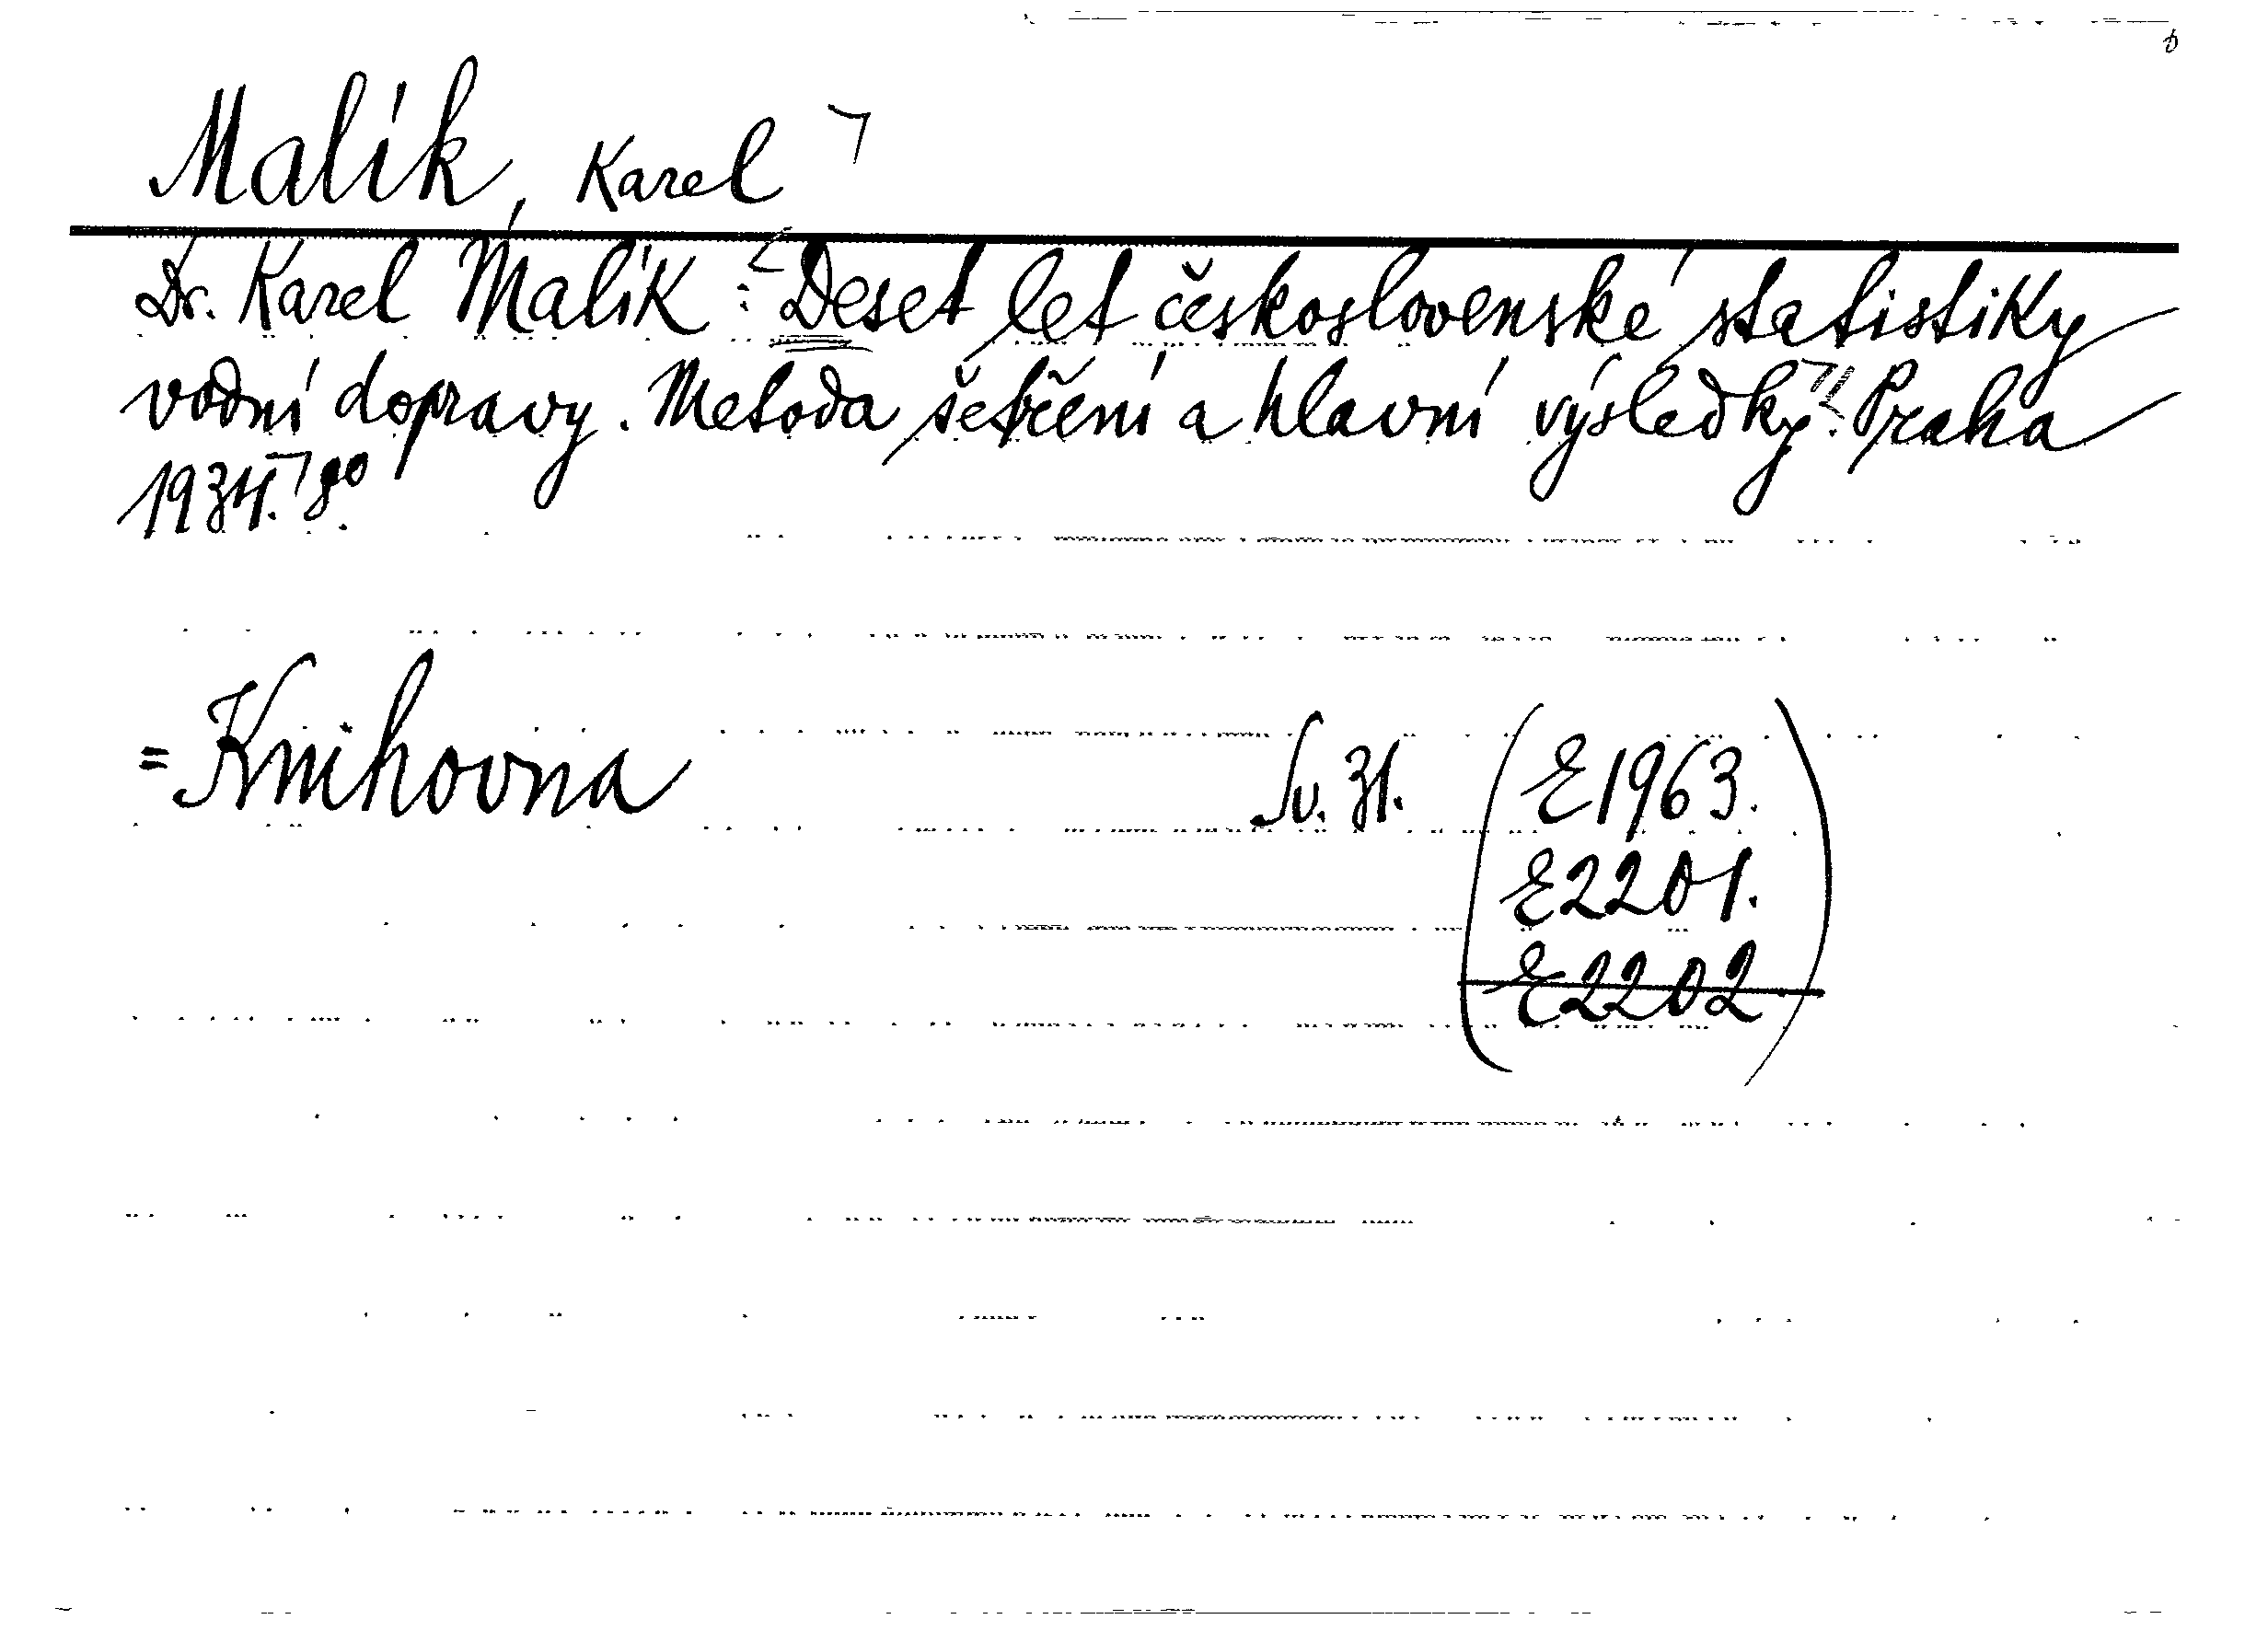 Malík, Karel
Dr. Karel Malík: Deset let československé statistiky
vodní dopravy. Metoda šetření a hlavní výsledky. Praha
1934. 8°.
= Knihovna Sv. 31. (E1963.
E2201.
E2202)